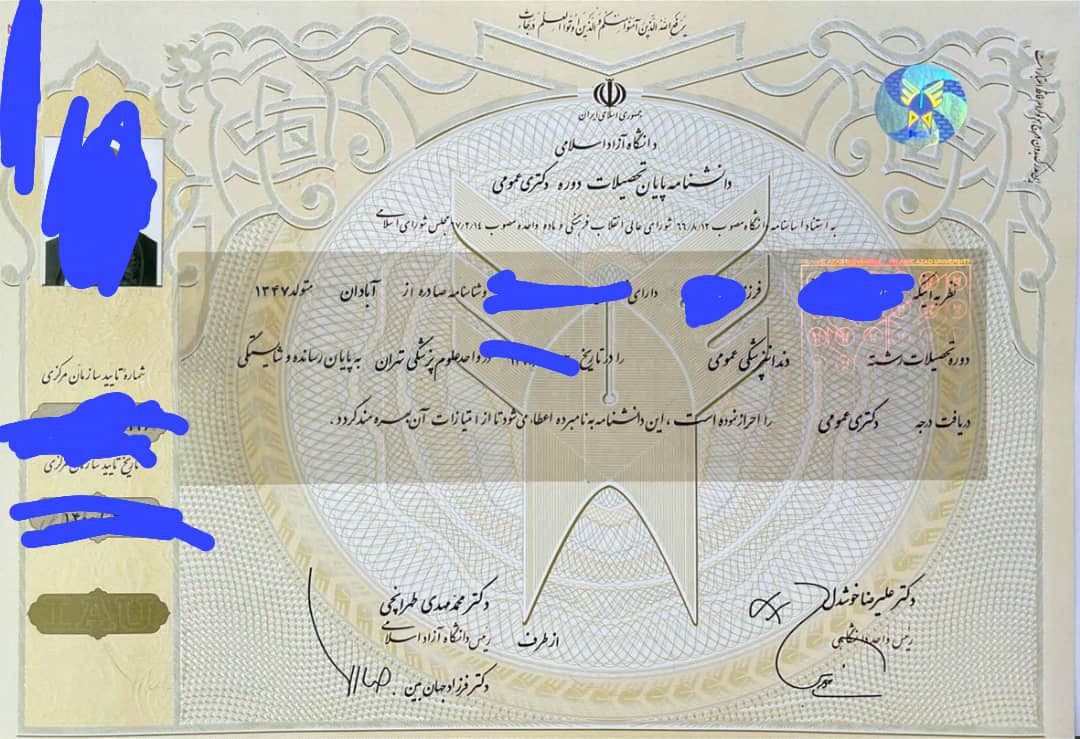 یرفع الله الذین آمنوا منکم والذین اوتوا العلم درجات
جمهوری اسلامی ایران
دانشگاه آزاد اسلامی
دانشنامه پایان تحصیلات دوره دکتری عمومی
به استناد اساسنامه دانشگاه مصوب ۶۶/۸/۱۲ شورای عالی انقلاب فرهنگی و ماده واحده مصوب ۶۷/۲/۱۴ مجلس شورای اسلامی
ISLAMIC AZAD UNIVERSITY
نظر به اینکه فرزند دارای وشناسنامه صادره از آبادان متولد ۱۳۴۷
دوره تحصیلات رشته دندانپزشکی عمومی را در تاریخ در واحد علوم پزشکی تهران به پایان رسانده و شایستگی
دریافت درجه دکتری عمومی را احراز نموده است ، این دانشنامه به نامبرده اعطاء می شود تا از امتیازات آن بهره مند گردد .
شماره تایید سازمان مرکزی
تاریخ تایید سازمان مرکزی
IAU
دکتر علیرضا خوشدل
رییس واحد دانشگاهی
دکتر محمد مهدی طهرانچی
رییس دانشگاه آزاد اسلامی
از طرف
دکتر فرزاد جهان بین